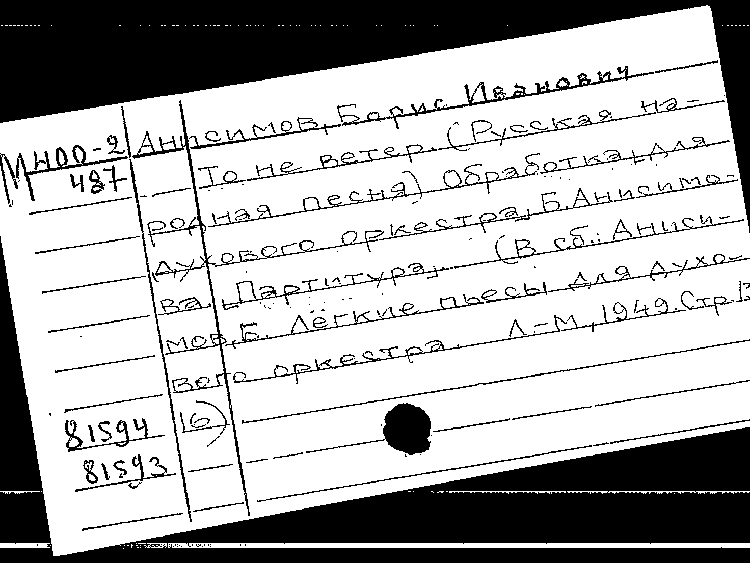 М400-2 Анисимов, Борис Иванович
487 То не ветер. (Русская на-
родная песня) Обработка для
духового оркестра Б. Анисимо-
ва. Партитура. (В сб.: Аниси-
мов, Б. Лёгкие пьесы для духо-
вого оркестра. Л.-М., 1949. Стр.
81594 16)
81593